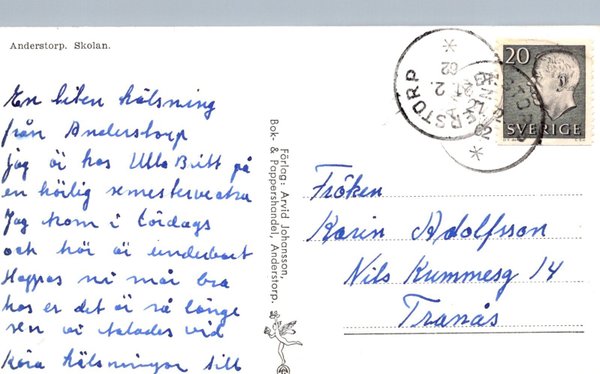 Anderstorp. Skolan.
En liten hälsning
från Anderstorp
Jag är hos Ulla Britt på
en härlig semestervecka
Jag kom i lördags
och här är underbart
Hoppas ni mår bra
hos er det är så länge
sen vi talades vid
Kära hälsningar till
Förlag: Arvid Johansson,
Bok & Pappershandel, Anderstorp.
ANDERSTORP
21.2.
62
20
SVERIGE
Fröken
Karin Adolfsson
Nils Kummesg 14
Tranås